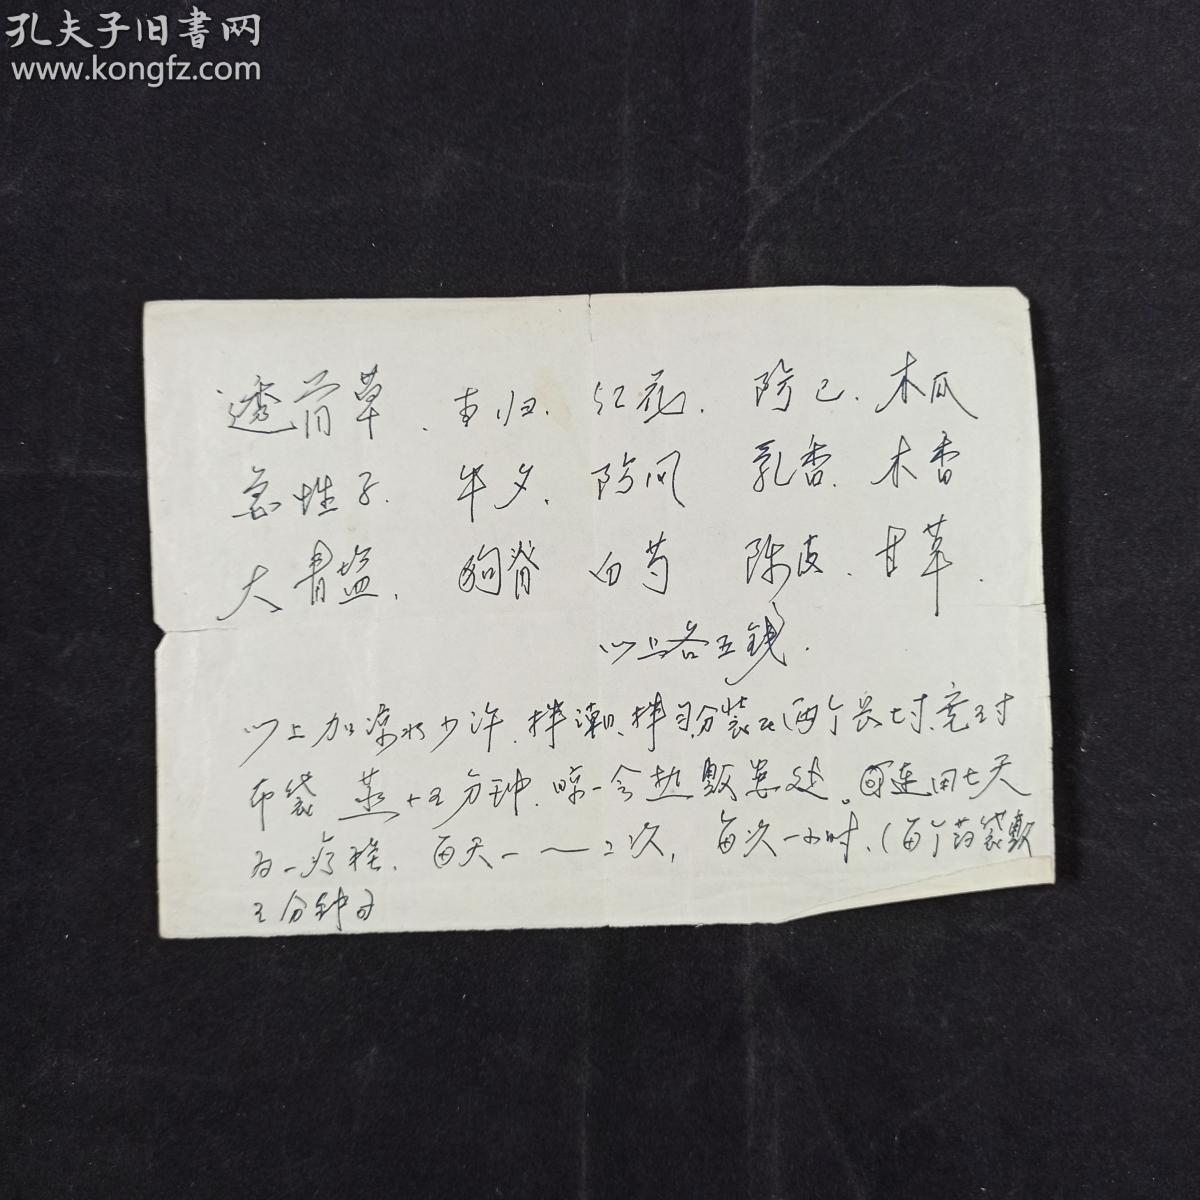 孔夫子旧書网
www.kongfz.com
透骨草、当归、红花、防己、木瓜
急性子、牛夕、防风 乳香、木香
大青盐、狗脊 白芍 陈皮、甘草、
以上各五钱、
以上加凉水少许、拌潮、拌匀分装在两个长七寸、宽三寸
布袋 蒸十五分钟、晾一会热敷患处。可连用七天
为一疗程、每天一～二次, 每次一小时、(每个药袋敷
三分钟